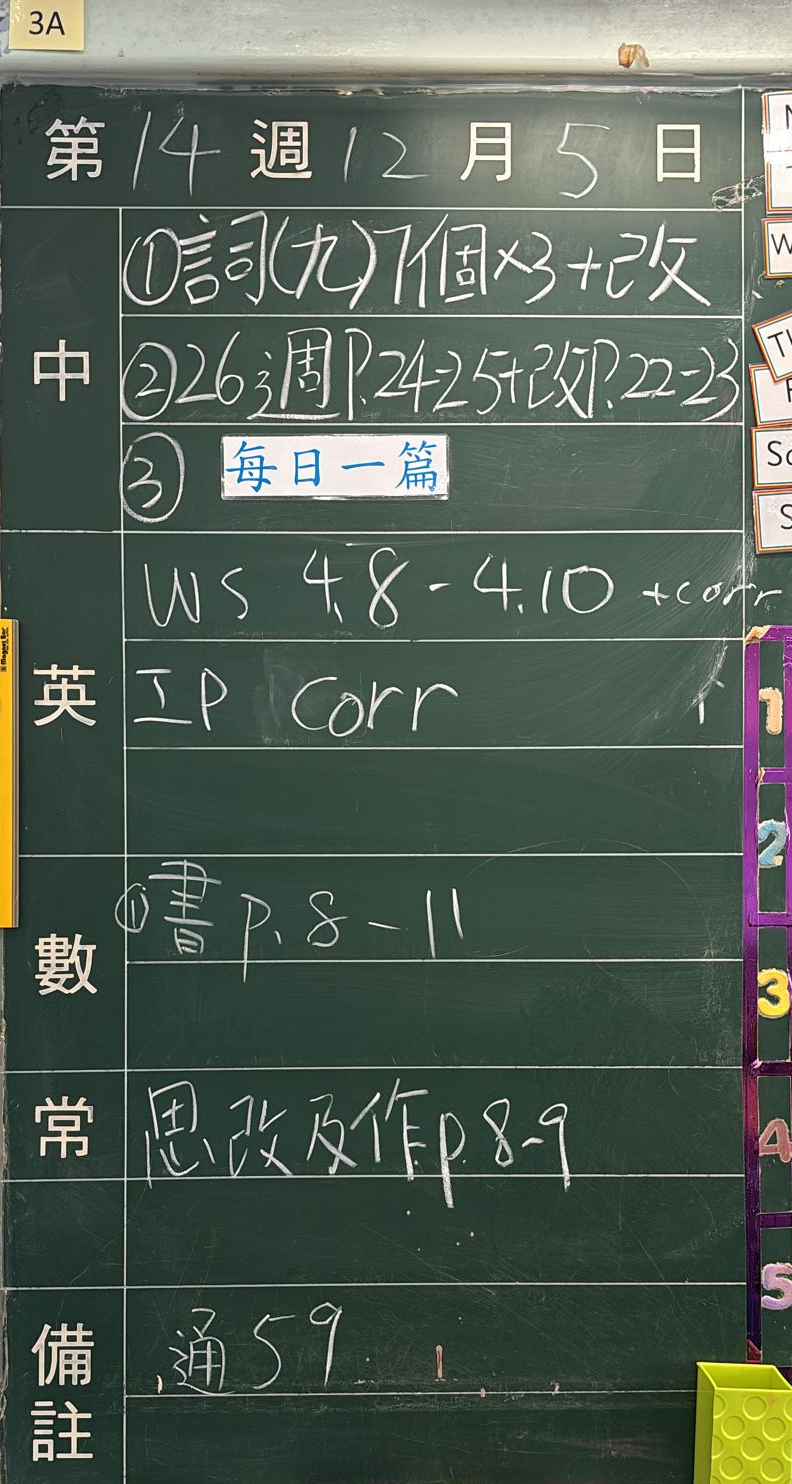 3A
第14週12月5日
中
①詞(九)7個×3+改
②26週P.24-25+改P.22-23
③ 每日一篇
英
WS 4.8-4.10 +corr
IP corr
數
①書p.8-11
常
思改及作p.8-9
備註
通59
1
2
3
4
5